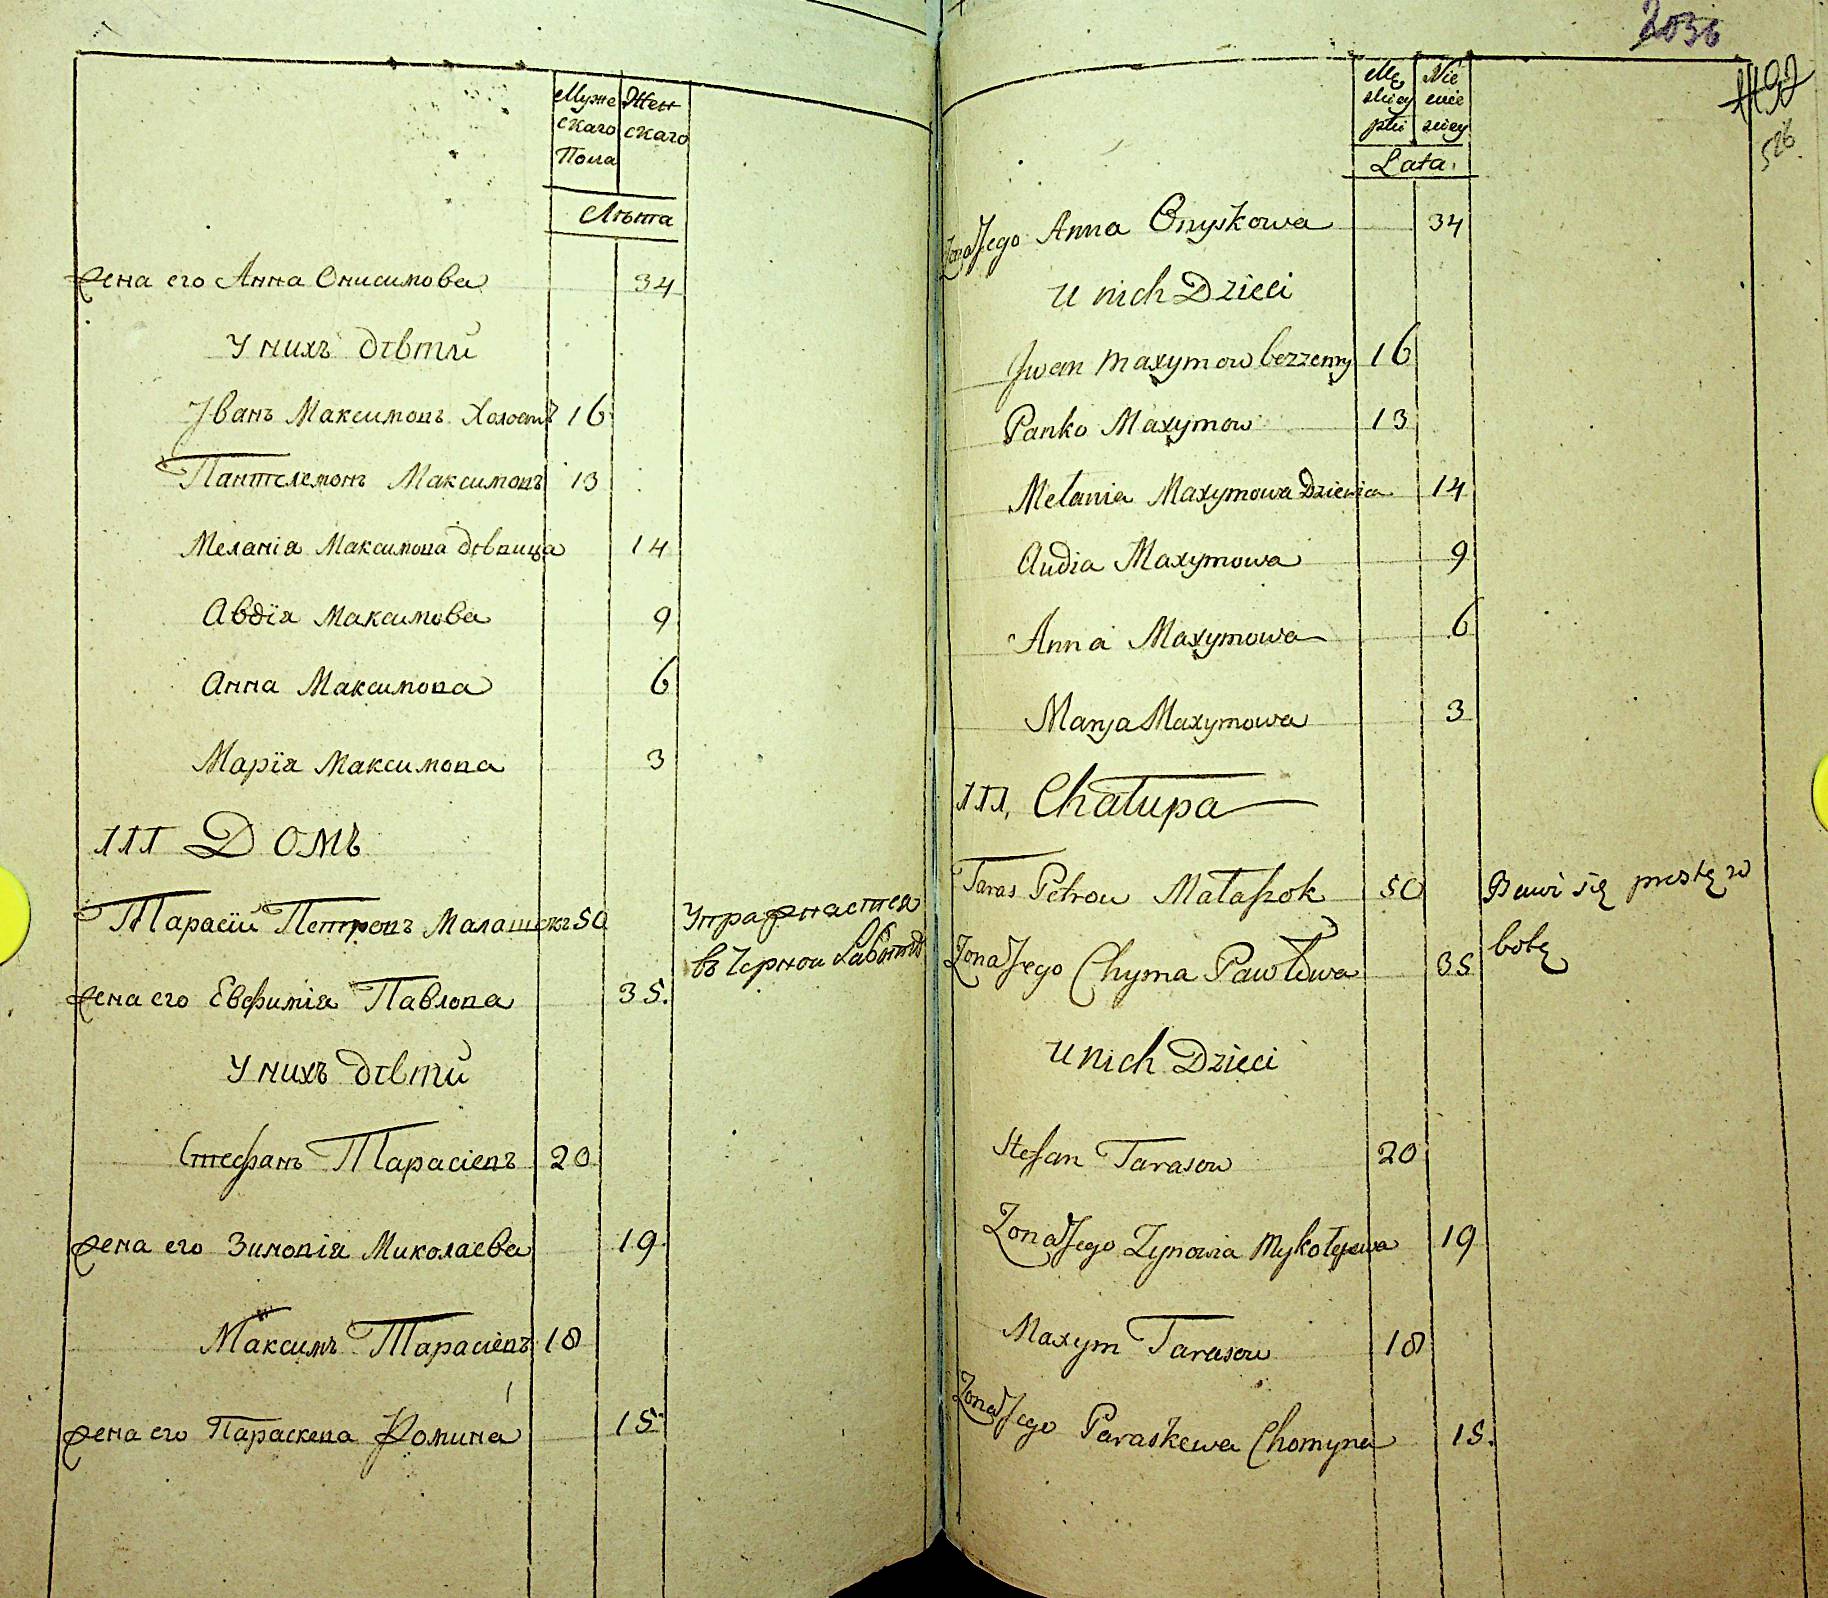 Муже Жен
скаго скаго
Пола
Лѣта
Жена его Анна Онисимова 34
У нихъ дѣти
Иванъ Максимовъ Холостъ 16
Пантелемонъ Максимовъ 13
Меланія Максимова дѣвица 14
Авдїя Максимова 9
Анна Максимова 6
Марїя Максимова 3
III Домъ
Тарасїй Петровъ Малашокъ 50 Упражнаетса
въ Черной Работѣ
Жена его Евфимія Павлова 35.
У нихъ дѣти
Стефанъ Тарасіевъ 20
Жена его Зиновія Миколаева 19
Максимъ Тарасіевъ 18
Жена его Параскева Фомина 15
2036
1192
526
Lata.
Żona Jego Anna Onyśkowa 34
U nich Dzieci
Jwan Maxymow bezzenny 16
Panko Maxymow 13
Melania Maxymowa Dziewica 14
Audia Maxymowa 9
Anna Maxymowa 6
Marya Maxymowa 3
III, Chałupa
Taras Petrow Małaszok 50 Bawi się prostę ro
botę
Żona Jego Chyma Pawłowa 35
U nich Dzieci
Stefan Tarasow 20
Żona Jego Zynowia Mykołajewa 19
Maxym Tarasow 18
Żona Jego Paraskewa Chomyna 15.